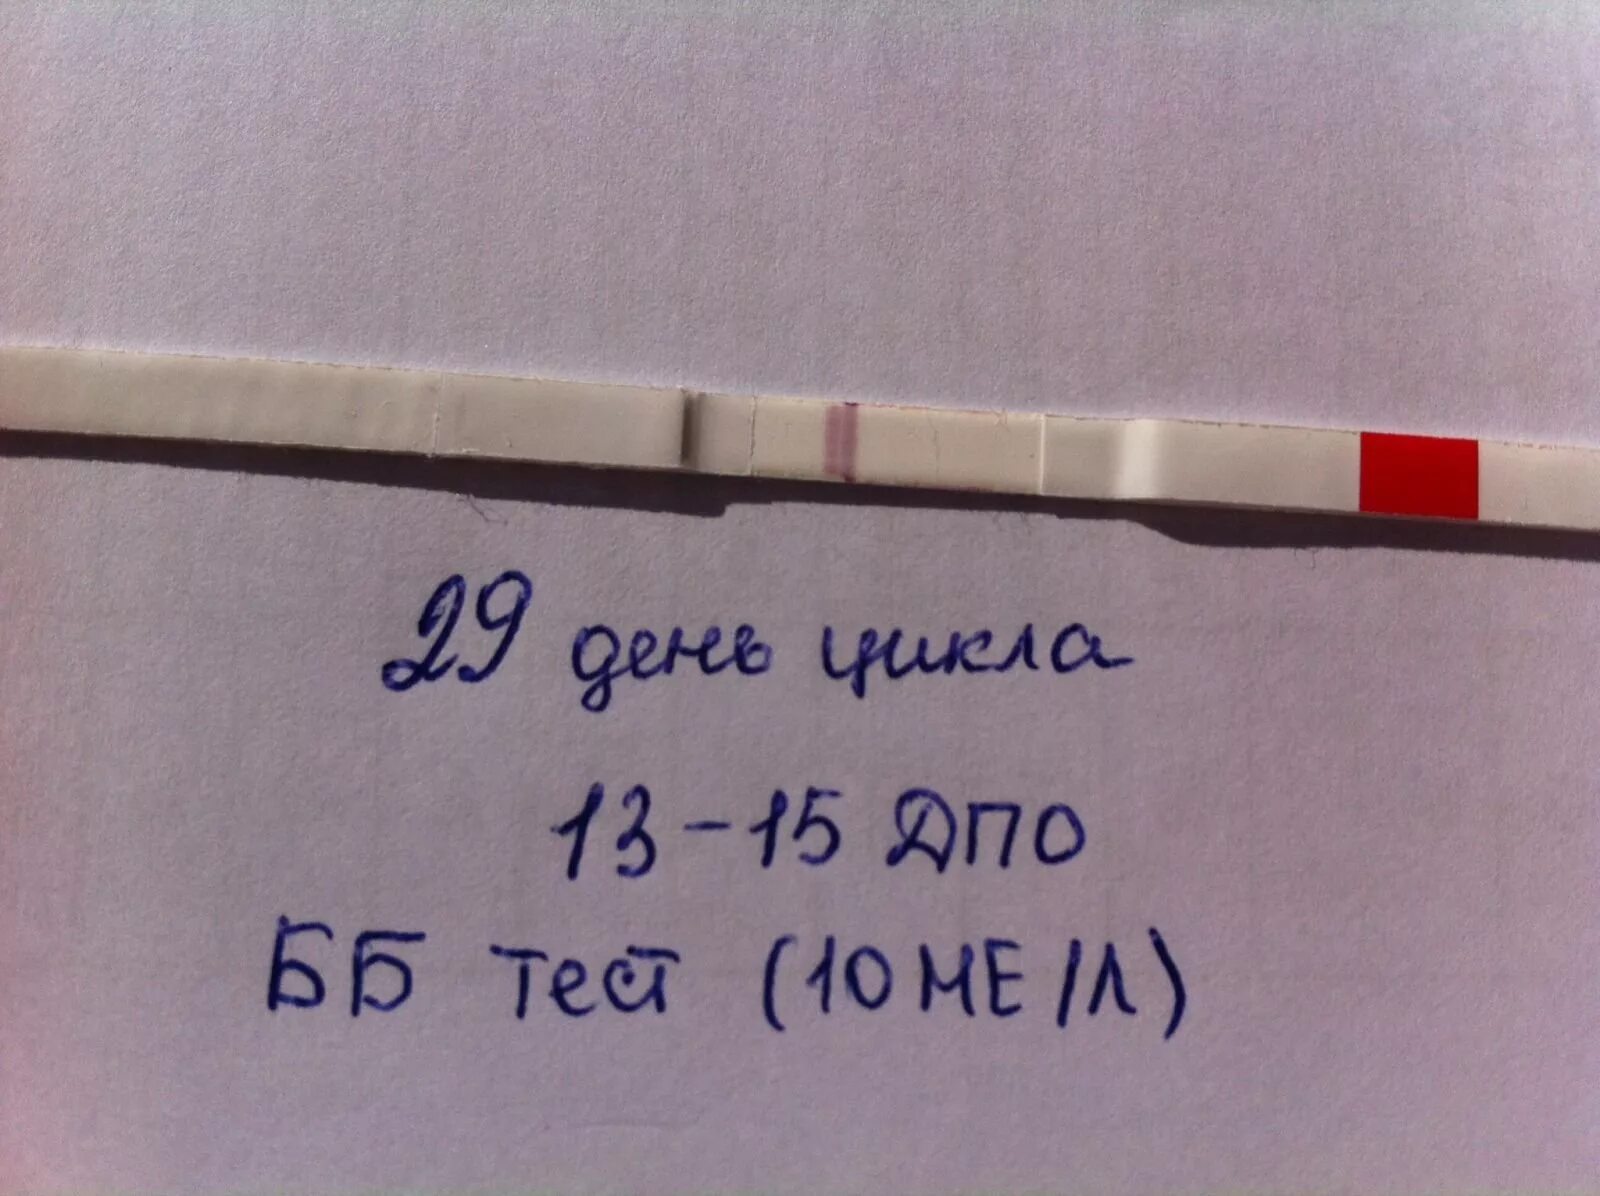 29 день цикла
13-15 ДПО
ББ тест (10 МЕ/Л)